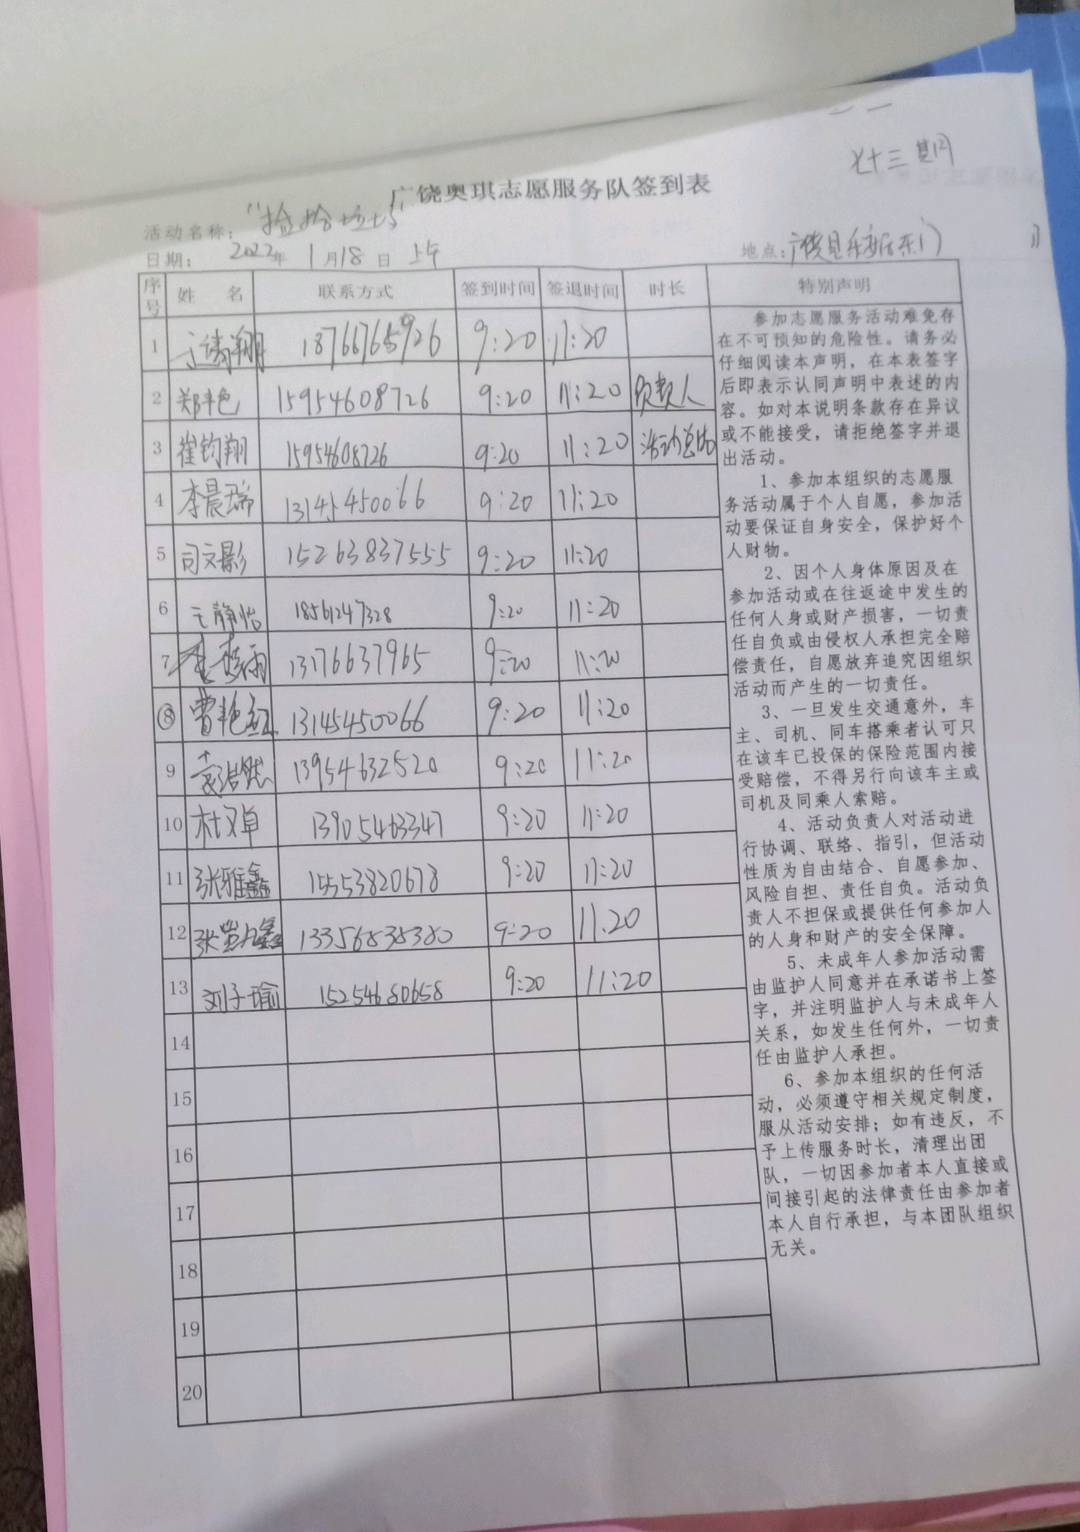 七十三期
广饶奥琪志愿服务队签到表
活动名称：“捡拾垃圾”
日期： 2022年 1月18日 上午 地点：广饶县
序号 姓 名 联系方式 签到时间 签退时间 时长 特别声明
1 18766765926 9:20 11:20
2 郑艳 15954608726 9:20 11:20 负责人
3 崔钧翔 15954608726 9:20 11:20 活动总结
4 李晨瑞 13145450066 9:20 11:20
5 司文影 15263837555 9:20 11:20
6 王静怡 18561247328 9:20 11:20
7 13176637965 9:20 11:20
8 曹艳红 13145450066 9:20 11:20
9 13954632520 9:20 11:20
10 杜文卓 13905463347 9:20 11:20
11 张雅鑫 15553820678 9:20 11:20
12 13356838380 9:20 11:20
13 刘子瑜 15254680658 9:20 11:20
14
15
16
17
18
19
20
参加志愿服务活动难免存
在不可预知的危险性。请务必
仔细阅读本声明，在本表签字
后即表示认同声明中表述的内
容。如对本说明条款存在异议
或不能接受，请拒绝签字并退
出活动。
1、参加本组织的志愿服
务活动属于个人自愿，参加活
动要保证自身安全，保护好个
人财物。
2、因个人身体原因及在
参加活动或在往返途中发生的
任何人身或财产损害，一切责
任自负或由侵权人承担完全赔
偿责任，自愿放弃追究因组织
活动而产生的一切责任。
3、一旦发生交通意外，车
主、司机、同车搭乘者认可只
在该车已投保的保险范围内接
受赔偿，不得另行向该车主或
司机及同乘人索赔。
4、活动负责人对活动进
行协调、联络、指引，但活动
性质为自由结合、自愿参加、
风险自担、责任自负。活动负
责人不担保或提供任何参加人
的人身和财产的安全保障。
5、未成年人参加活动需
由监护人同意并在承诺书上签
字，并注明监护人与未成年人
关系，如发生任何外，一切责
任由监护人承担。
6、参加本组织的任何活
动，必须遵守相关规定制度，
服从活动安排；如有违反，不
予上传服务时长，清理出团
队，一切因参加者本人直接或
间接引起的法律责任由参加者
本人自行承担，与本团队组织
无关。